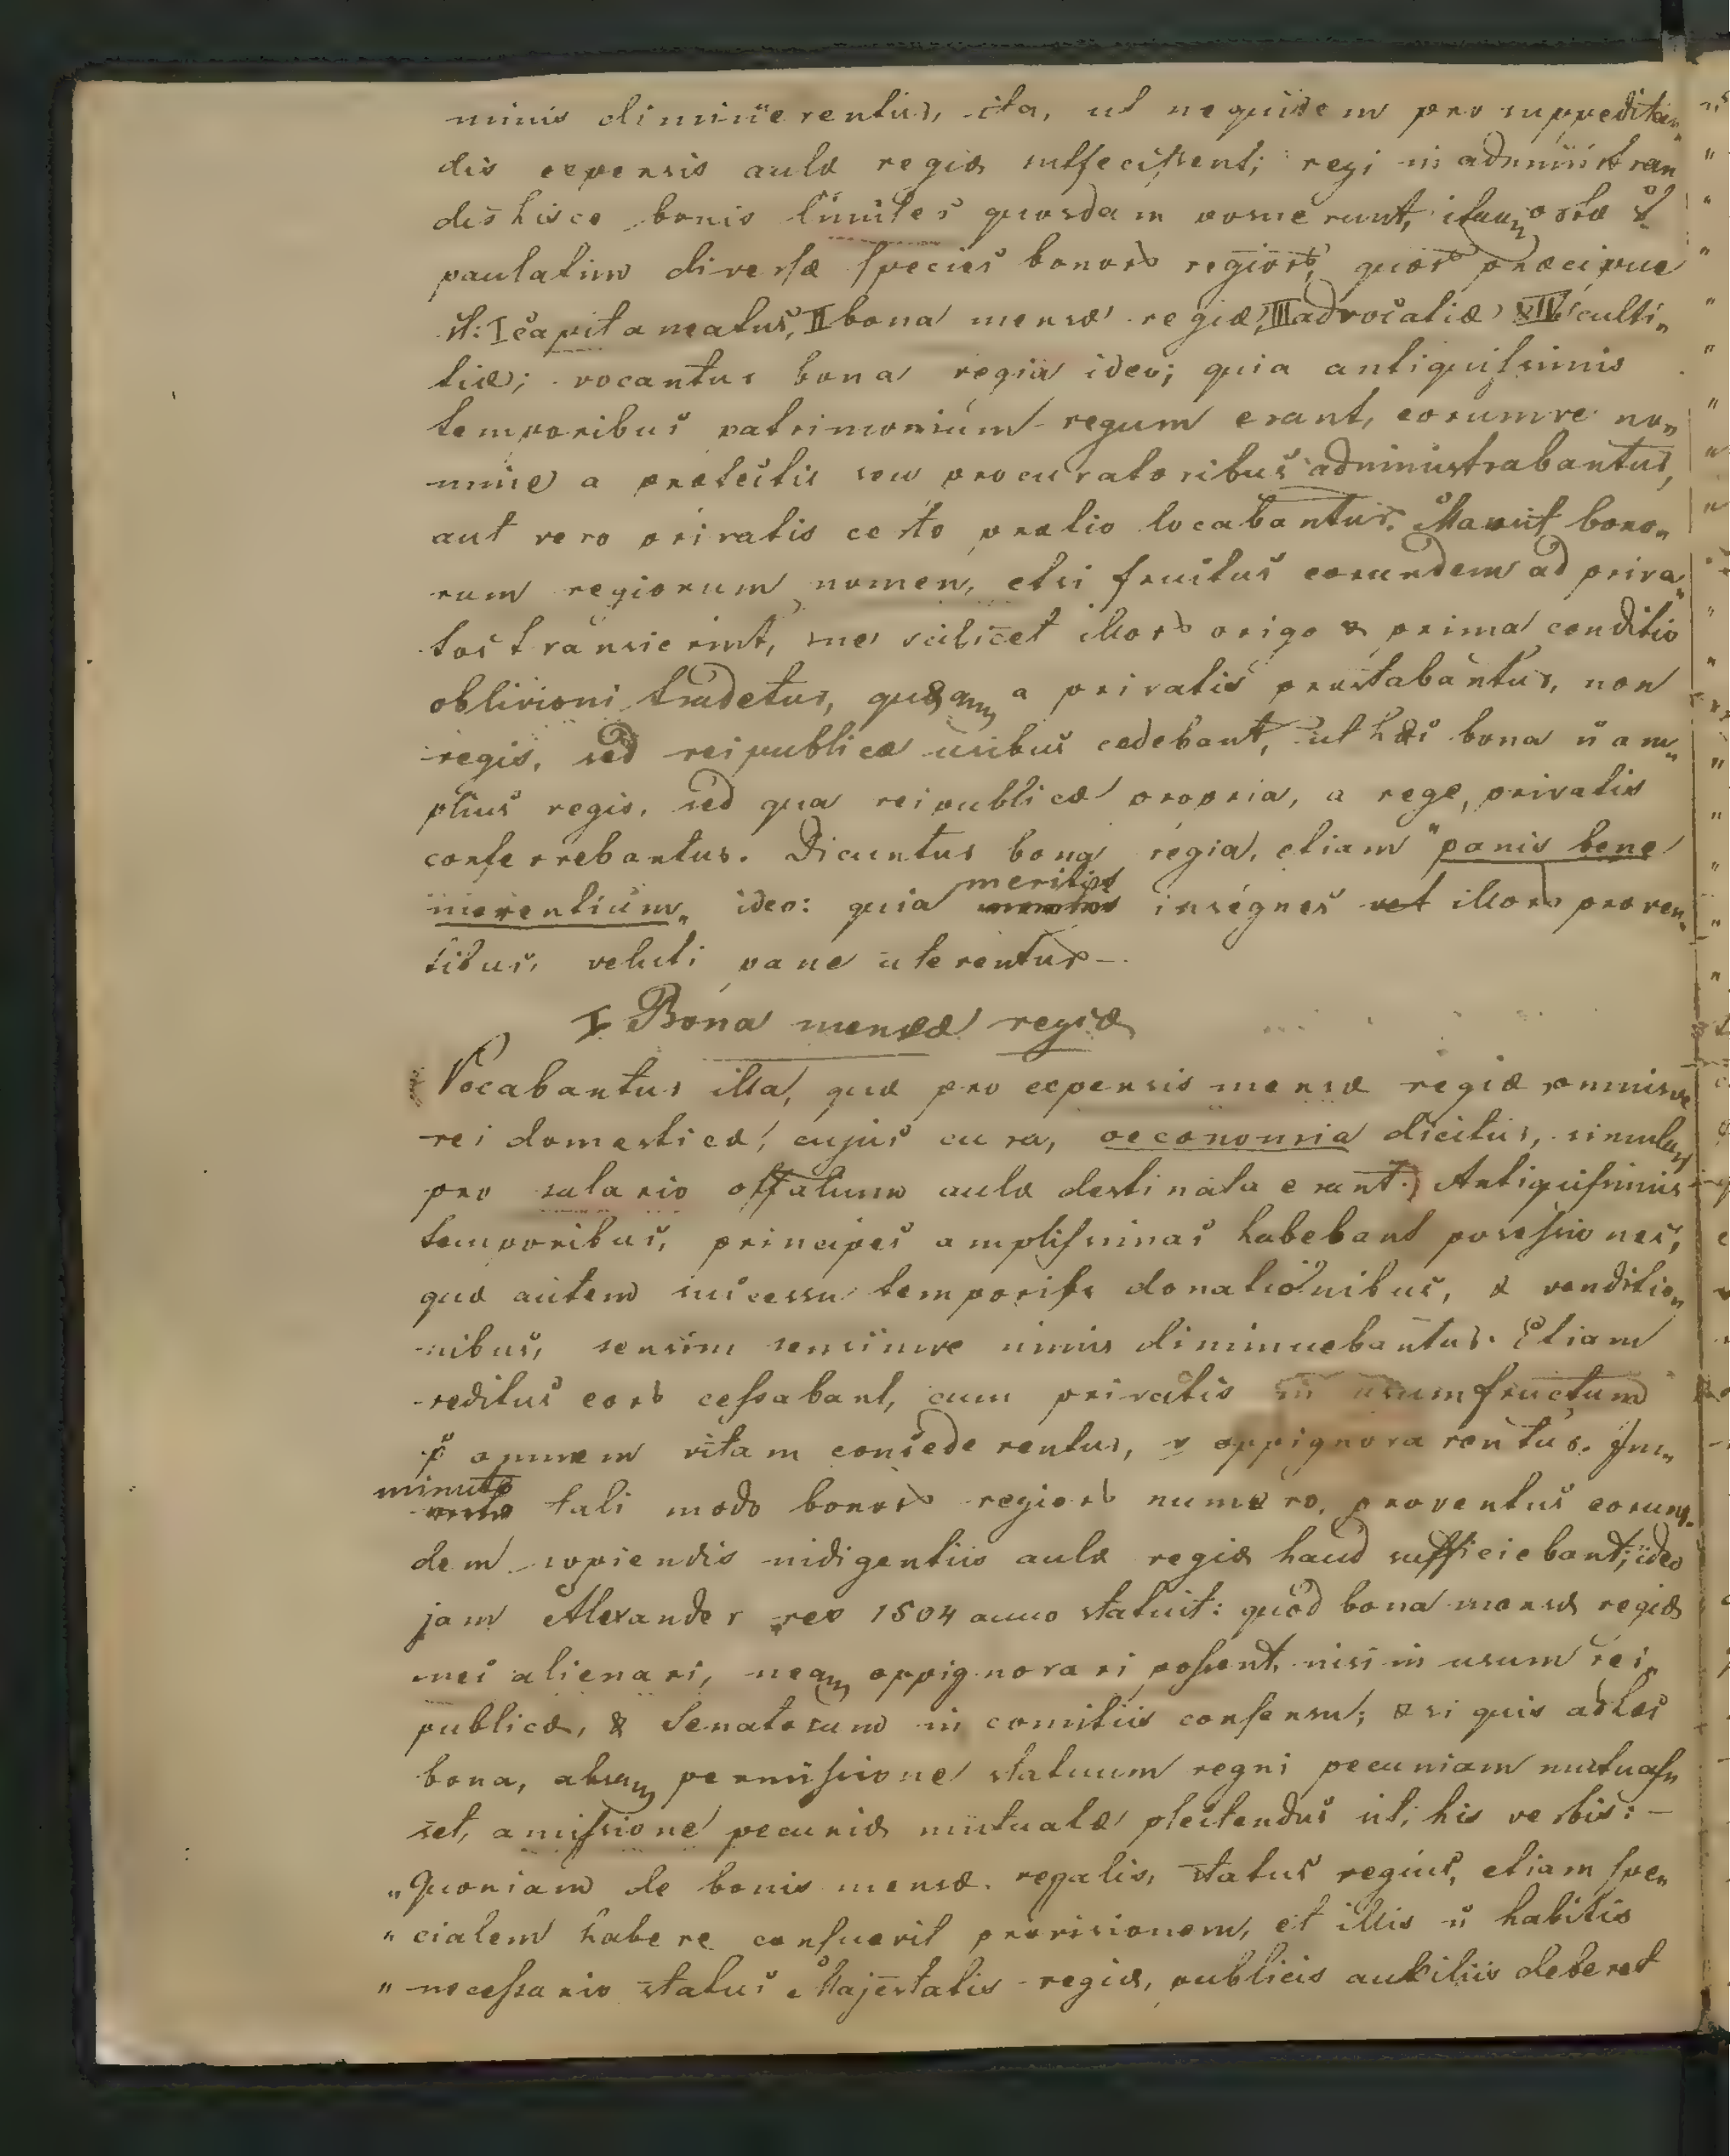 nimis diminüerentur, ita, ut nequidem pro suppeditan„
dis expensis aulæ regiæ suffecissent; regi in administran
dis hisce bonis limites quosdam posuerunt, itaq ortæ st
paulatim diversæ species bonor regior, quor præcipue
st: I capitaneatus, II bona mensæ regiæ, III advocatiæ & IV sculte„
tiæ; vocantur bona regia ideo; quia antiquissimis
temporibus patrimonium regum erant, eorumve no„
mine a præfectis seu procuratoribus administrabantur,
aut vero privatis certo pretio locabantur. Mansit bono„
rum regiorum nomen, etsi fructus eorundem ad priva„
tos transierint, ne scilicet illor origo & prima conditio
oblivioni tradetur, quæq a privatis præstabantur, non
regis, sed reipublicæ usibus cedebant, ut hæc bona ñ am„
plius regis, sed qua reipublicæ propria, a rege, privatis
conferrebantur. Dicuntur bona regia, etiam "panis bene
merentium„ ideo: quia meritis insignes illor proven„
tibus, veluti pane uterentur –.
I Bona mensæ regiæ
Vocabantur illa, quæ pro expensis mensæ regiæ omnisve
rei domesticæ, cujus cura, oeconomia dicitur, simulq
pro salario offalium aulæ destinata erant.) Antiquissimis
temporibus, principes amplissimas habebant posessiones,
quæ autem successu temporis donationibus, & venditio„
nibus, sensim sensimve nimis diminuebantur. Etiam
reditus eor cessabant, cum privatis in usumfructum
p omnem vitam concederentur, v oppignorarentur. Im„
minuto tali modo bonor regior numero, proventus eorun„
dem sopiendis indigentiis aulæ regiæ haud sufficiebant; ideo
jam Alexander rex 1504 anno statuit: quod bona mensæ regiæ
nec alienari, neq oppignorari possent, nisi in usum rei„
publicæ, & Senatorum in comitiis consensu; & si quis ad hæc
bona, absq permissione statuum regni pecuniam mutuas„
set, amissione pecuniæ mutuatæ plectendus sit, his verbis: –
„Quoniam de bonis mensæ regalis, status regius, etiam spe„
„cialem habere consuevit provisionem, et illis ñ habitis
„necessario status Majestatis regiæ, publicis auxiliis deberet